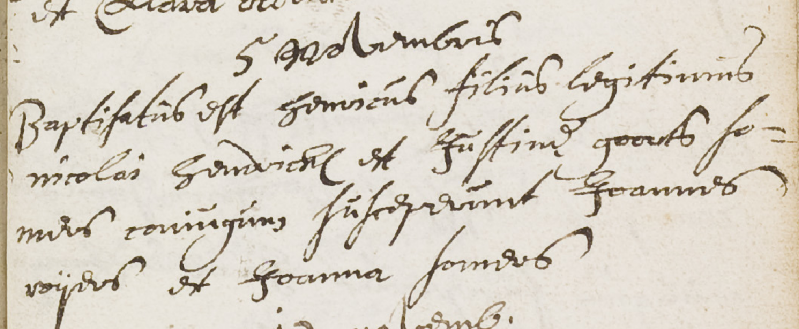 et Clara
5 Novembris
Baptisatus est henricus filius legitimus
nicolai hendrickx et Justinæ goorts so=
mers coniugum susceperunt Joannes
royers et Joanna somers